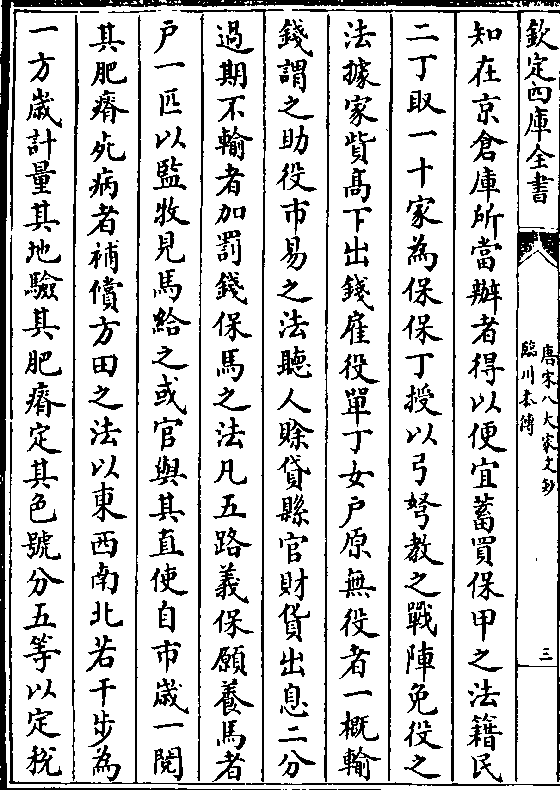 欽定四庫全書
唐宋八大家文鈔
臨川本傳
三
知在京倉庫所當辦者得以便宜蓄買保甲之法籍民
二丁取一十家為保保丁授以弓弩教之戰陣免役之
法據家貲髙下出錢雇役單丁女户原無役者一概輸
錢謂之助役市易之法聽人賒貸縣官財貨出息二分
過期不輸者加罰錢保馬之法凡五路義保願養馬者
户一匹以監牧見馬給之或官與其直使自市歲一閱
其肥瘠死病者補償方田之法以東西南北若干步為
一方歲計量其地驗其肥瘠定其色號分五等以定稅